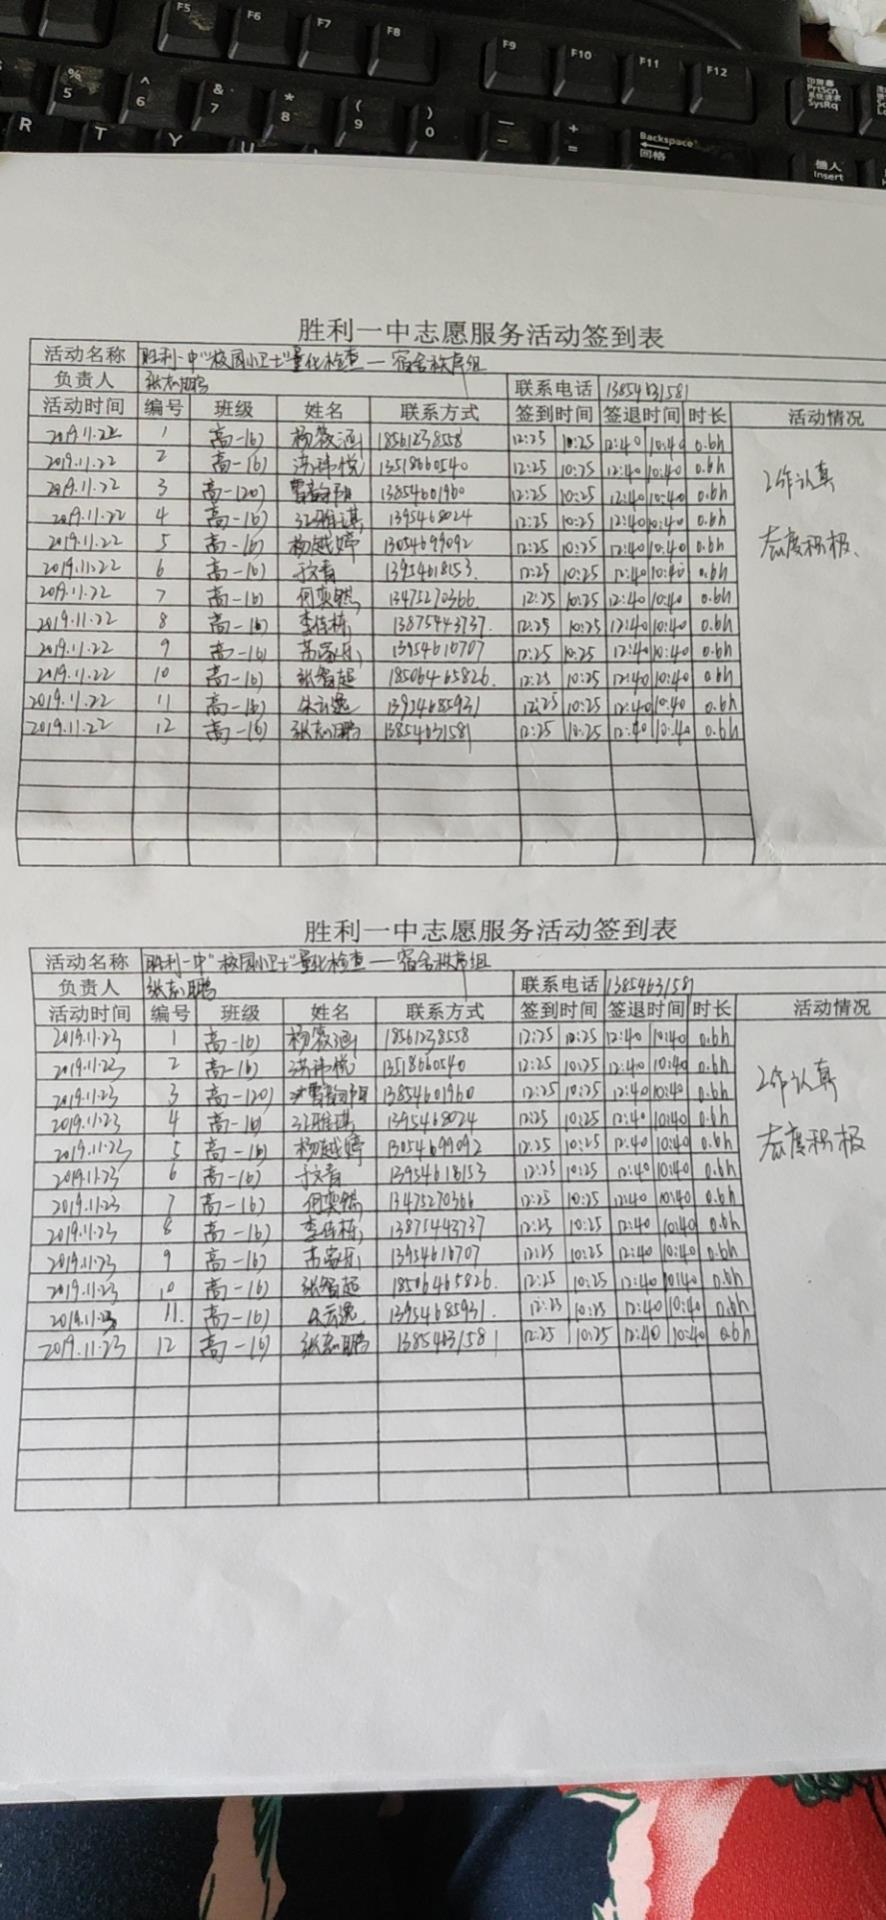 F5 F6 F7 F8 F9 F10 F11 F12 PrtScn SysRq
% 5 ^ 6 & 7 * 8 ( 9 ) 0 — - + = Backspace 回格 插入 Insert
R T Y U
胜利一中志愿服务活动签到表
活动名称 胜利一中"校园小卫士"量化检查—宿舍秩序组
负责人 张志鹏 联系电话 13854631581
活动时间 编号 班级 姓名 联系方式 签到时间 签退时间 时长 活动情况
2019.11.22 1 高一(6) 杨筱涵 18561238558 12:25 10:25 12:40 10:40 0.6h
2019.11.22 2 高一(6) 洪玮悦 13518660540 12:25 10:25 12:40 10:40 0.6h 工作认真
2019.11.22 3 高一(20) 13854601960 12:25 10:25 12:40 10:40 0.6h
2019.11.22 4 高一(6) 1395468024 12:25 10:25 12:40 10:40 0.6h
2019.11.22 5 高一(6) 杨越婷 13054699092 12:25 10:25 12:40 10:40 0.6h 态度积极、
2019.11.22 6 高一(6) 于文青 13954618153. 12:25 10:25 12:40 10:40 0.6h
2019.11.22 7 高一(6) 何奕铭 13475270366 12:25 10:25 12:40 10:40 0.6h
2019.11.22 8 高一(6) 李佳栋 13875443737. 12:25 10:25 12:40 10:40 0.6h
2019.11.22 9 高一(6) 13954610707 12:25 10:25 12:40 10:40 0.6h
2019.11.22 10 高一(6) 张智超 18506465826. 12:25 10:25 12:40 10:40 0.6h
2019.11.22 11 高一(6) 12:25 10:25 12:40 10:40 0.6h
2019.11.22 12 高一(6) 张志鹏 13854631581 12:25 10:25 12:40 10:40 0.6h
胜利一中志愿服务活动签到表
活动名称 胜利一中"校园小卫士"量化检查—宿舍秩序组
负责人 张志鹏 联系电话 1385463158
活动时间 编号 班级 姓名 联系方式 签到时间 签退时间 时长 活动情况
2019.11.23 1 高一(6) 杨筱涵 18561238558 12:25 10:25 12:40 10:40 0.6h
2019.11.23 2 高一(6) 洪玮悦 13518660540 12:25 10:25 12:40 10:40 0.6h 工作认真
2019.11.23 3 高一(20) 13854601960 12:25 10:25 12:40 10:40 0.6h
2019.11.23 4 高一(6) 1395468024 12:25 10:25 12:40 10:40 0.6h
2019.11.23 5 高一(6) 杨越婷 13054699092 12:25 10:25 12:40 10:40 0.6h 态度积极
2019.11.23 6 高一(6) 于文青 13954618153 12:25 10:25 12:40 10:40 0.6h
2019.11.23 7 高一(6) 何奕铭 13475270366 12:25 10:25 12:40 10:40 0.6h
2019.11.23 8 高一(6) 李佳栋 13875443737 12:25 10:25 12:40 10:40 0.6h
2019.11.23 9 高一(6) 13954610707 12:25 10:25 12:40 10:40 0.6h
2019.11.23 10 高一(6) 张智超 18506465826. 12:25 10:25 12:40 10:40 0.6h
2019.11.23 11. 高一(6) 13954685931. 12:25 10:25 12:40 10:40 0.6h
2019.11.23 12 高一(6) 张志鹏 13854631581 12:25 10:25 12:40 10:40 0.6h